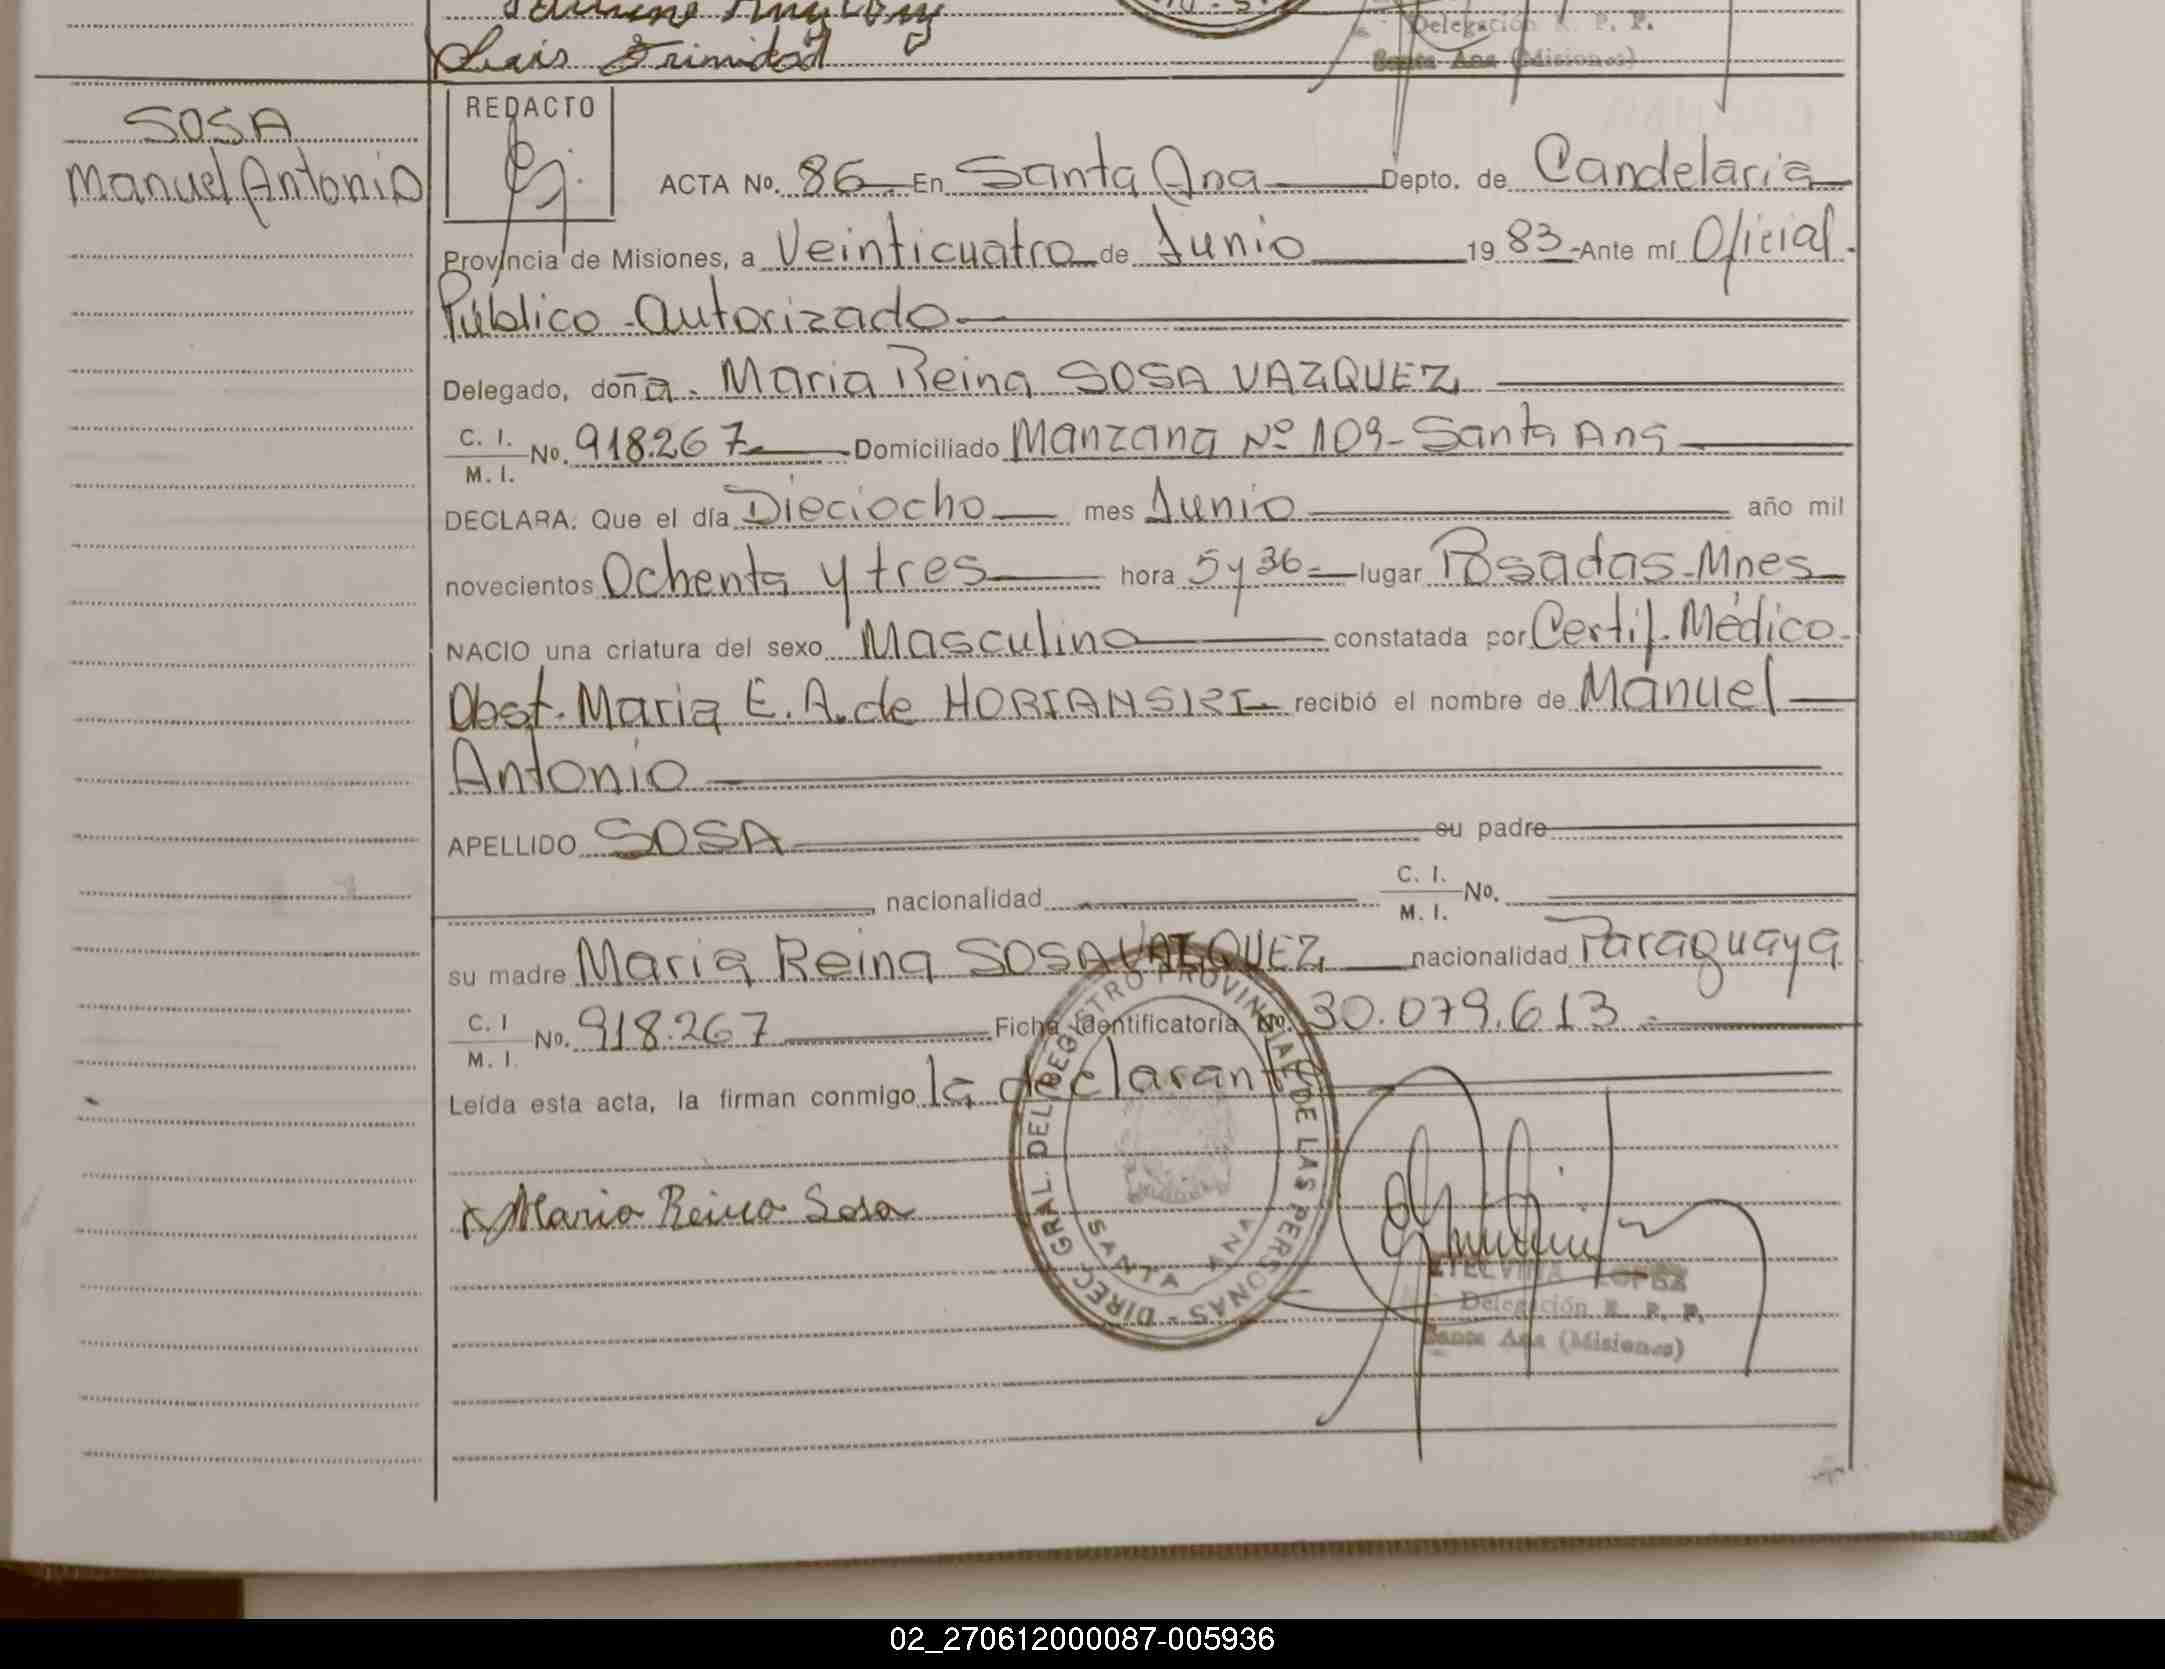 Luis Trinidad
Delegación R. P. P.
Santa Ana (Misiones)
SOSA
Manuel Antonio
REDACTO
ACTA No. 86 En Santa Ana Depto. de Candelaria
Provincia de Misiones, a Veinticuatro de Junio 1983-Ante mí Oficial
Público Autorizado
Delegado, doña. Maria Reina SOSA VAZQUEZ
C. I.
M. I. No. 918.267 Domiciliado Manzana Nº 109- Santa Ana
DECLARA: Que el día Dieciocho mes Junio año mil
novecientos Ochenta y tres hora 5 y 36 lugar Posadas-Mnes
NACIO una criatura del sexo Masculino constatada por Certif. Médico
Obst. Maria E. A. de recibió el nombre de Manuel
Antonio
APELLIDO SOSA su padre
nacionalidad C. I.
M. I. No.
su madre Maria Reina SOSA VAZQUEZ nacionalidad Paraguaya
C. I
M. I. No. 918.267 Ficha Identificatoria No. 30.079.613
Leída esta acta, la firman conmigo la declarante
x Maria Reina Sosa
DIREC. GRAL. DEL REGISTRO PROVINCIAL DE LAS PERSONAS
SANTA ANA
ETELVINA LOPEZ
Delegación R. P. P.
Santa Ana (Misiones)
02_270612000087-005936